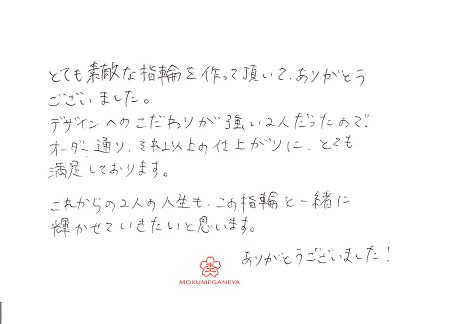 とても素敵な指輪を作って頂いて、ありがとう
ございました。
デザインへのこだわりが強い2人だったので、
オーダー通り、それ以上の仕上がりに、とても
満足しております。
これからの2人の人生も、この指輪と一緒に
輝かせていきたいと思います。
ありがとうございました!
MOKUMEGANEYA